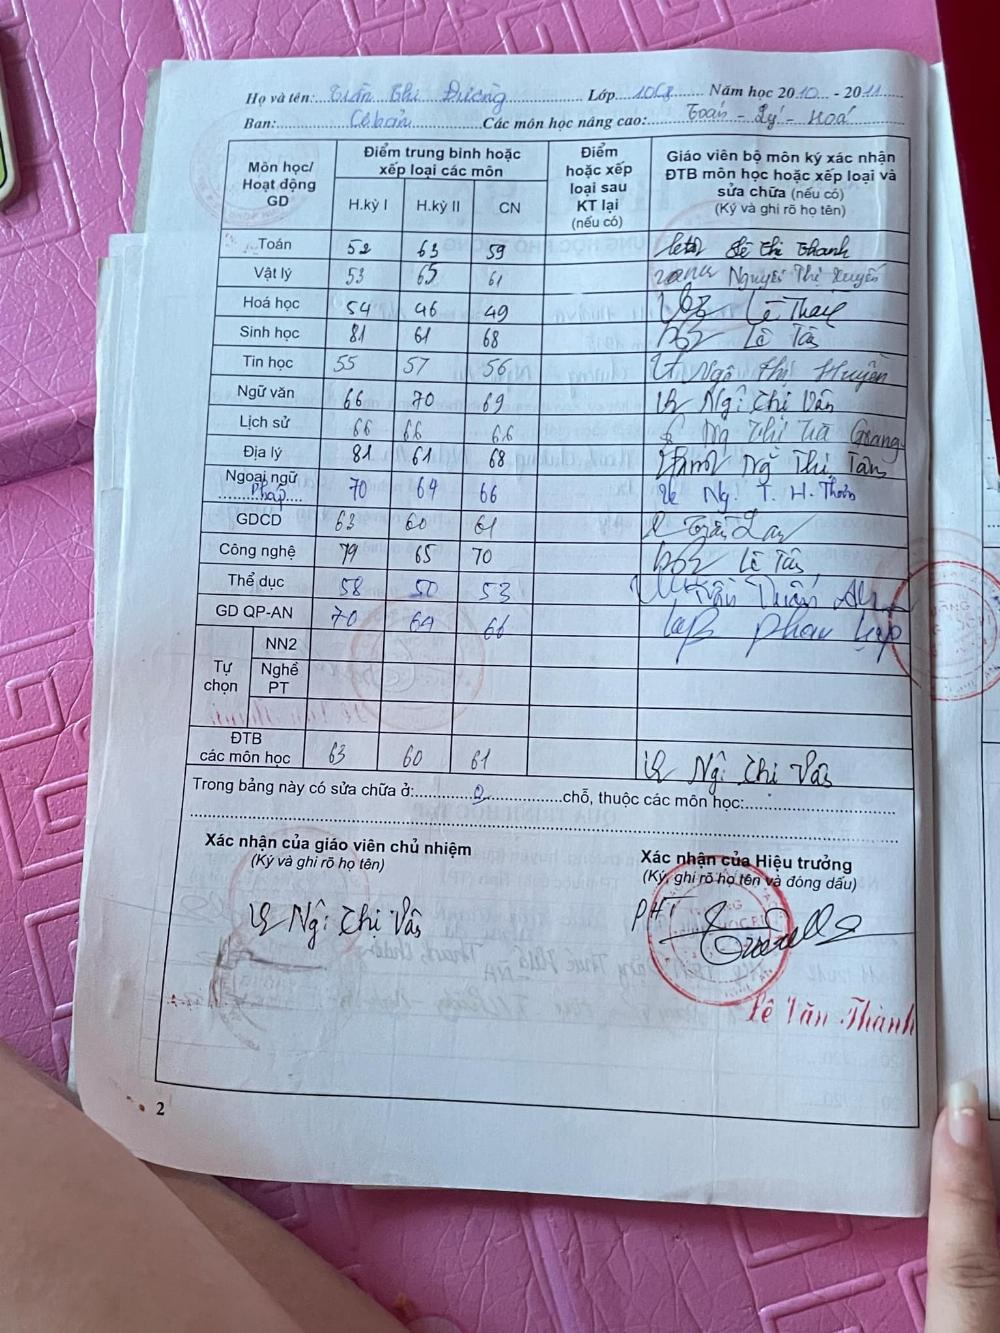 Họ và tên: Trần Thị Đường Lớp 10C8 Năm học 2010 - 2011
Ban: Cơ bản Các môn học nâng cao: Toán - Lý - Hoá
Môn học/ Hoạt động GD
Điểm trung bình hoặc xếp loại các môn
H.kỳ I H.kỳ II CN
Điểm hoặc xếp loại sau KT lại (nếu có)
Giáo viên bộ môn ký xác nhận ĐTB môn học hoặc xếp loại và sửa chữa (nếu có) (Ký và ghi rõ họ tên)
Toán 52 63 59 Lê Thị Thanh
Vật lý 53 65 61 Nguyễn Thị Xuyến
Hoá học 54 46 49 Lê
Sinh học 81 61 68 Lê Tấn
Tin học 55 57 56 Ngô Thị Huyền
Ngữ văn 66 70 69 Ng. Thị Vân
Lịch sử 66 66 66 Ng Thị Trà Giang
Địa lý 81 61 68 Ng Thị Tâm
Ngoại ngữ Pháp 70 64 66 Ng. T. H.
GDCD 63 60 61
Công nghệ 79 65 70 Lê Tấn
Thể dục 58 50 53 Trần
GD QP-AN 70 64 66
Tự chọn
NN2
Nghề PT
ĐTB các môn học 63 60 61 Ng. Thị Vân
Trong bảng này có sửa chữa ở: 0 chỗ, thuộc các môn học:
Xác nhận của giáo viên chủ nhiệm
(Ký và ghi rõ họ tên)
Ng. Thị Vân
Xác nhận của Hiệu trưởng
(Ký, ghi rõ họ tên và đóng dấu)
PHT
Lê Văn Thành
2